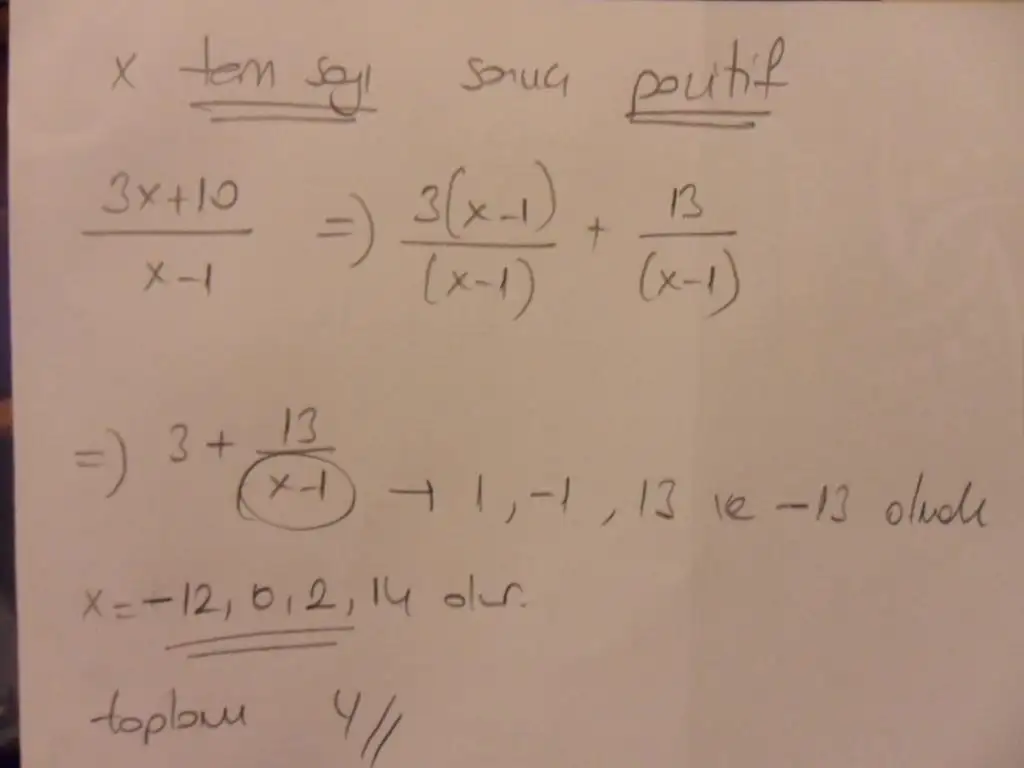 x tam sayı sonucu pozitif
3x+10 / x-1 => 3(x-1) / (x-1) + 13 / (x-1)
=> 3 + 13 / x-1 → 1, -1, 13 ve -13 olmalı
x = -12, 0, 2, 14 olur.
toplam 4//